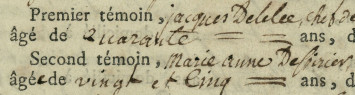 Premier témoin, jacques Delelee, chef de
âgé de quarante ans, d
Second témoin, Marie anne Desirier,
âgée de vingt et Cinq ans, d